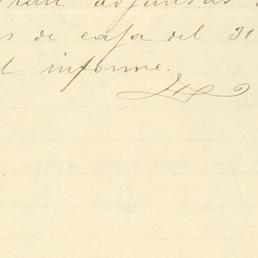 adjuntas
s de caja del 31
l informe.